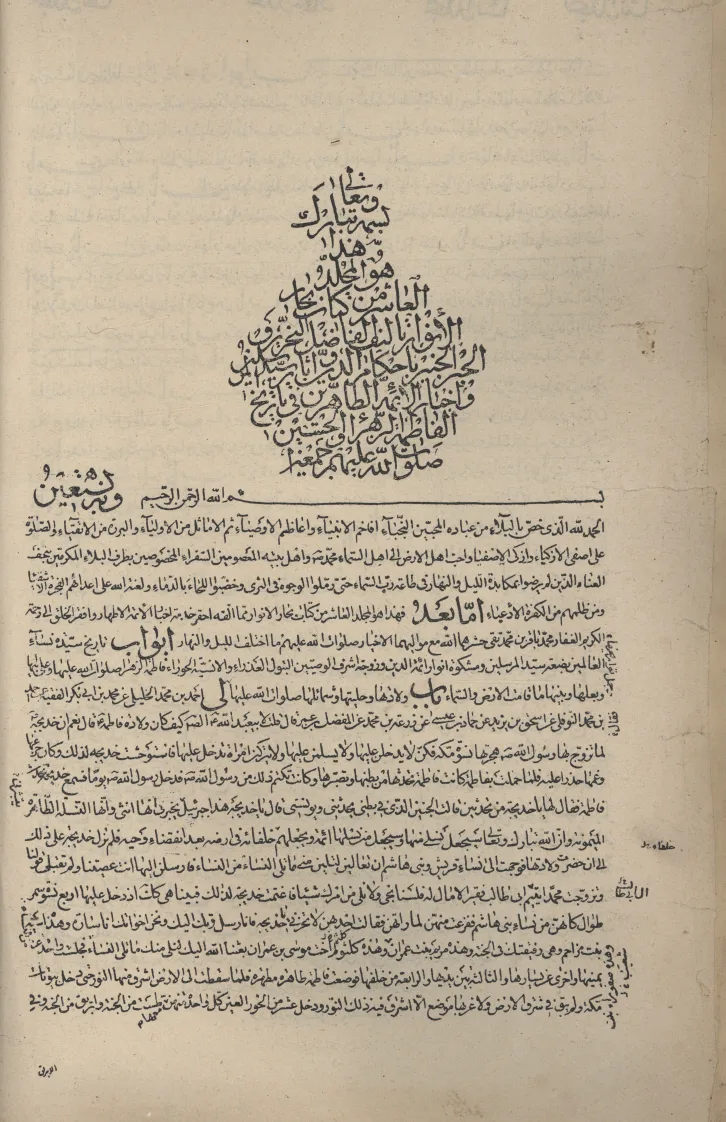 بسمه تبارك وتعالى
هذا
هو المجلد
العاشر من كتاب بحار
الأنوار تاليف الفاضل النحرير و
الحبر الخبير باحكام الدين واثار سيد المرسلين
واخبار الائمة الطاهرين في تاريخ
الفاطمة الزهراء والحسنين
صلوات الله عليهم اجمعين
بسم الله الرحمن الرحيم وبه نستعين
الحمد لله الذي خص بالبلاء من عباده المحبين النجباء افاخم الانبياء واعاظم الاوصياء ثم الاماثل من الاولياء والبررة من الاتقياء والصلوة
على اصفى الازكياء وازكى الاصفياء واحب اهل الارض الى اهل السماء محمد ص واهل بيته المعصومين السفراء المخصوصين بطرف البلاء المكرمين بتحف
العناء الذين لم يرضوا بمكابدة الليل والنهار في طاعة رب السماء حتى رملوا الوجوه في الثرى وخضبوا اللحاء بالدماء ولعنة الله على اعدائهم الفجرة الاشقياء
ومن ظلمهم من الكفرة الادعياء اما بعد فهذا هو المجلد العاشر من كتاب بحار الانوار مما الفه احقر خدمة اخبار الائمة الاطهار وافقر الخلق الى رحمة
الكريم الغفار محمد باقر بن محمد تقي حشرهما الله مع مواليهما الاخيار صلوات الله عليهم ما اختلف الليل والنهار ابواب تاريخ سيدة نساء
العالمين بضعة سيد المرسلين ومشكوة انوار ائمة الدين وزوجة اشرف الوصيين البتول العذراء والانسية الحوراء فاطمة الزهراء صلوات الله عليها وعلى ابيها
وبعلها وبنيها ما قامت الارض والسماء باب ولادتها وحليتها وشمائلها صلوات الله عليها لي احمد بن محمد الخليلي عن محمد بن ابي بكر الفقيه عن احمد
بن محمد النوفلي عن اسحق بن يزيد عن حماد بن عيسى عن زرعة بن محمد عن المفضل بن عمر قال قلت لابي عبد الله كيف كان ولادة فاطمة قال نعم ان خديجة
لما تزوج بها رسول الله ص هجرتها نسوة مكة فكن لا يدخلن عليها ولا يسلمن عليها ولا يتركن امراة تدخل عليها فاستوحشت خديجه لذلك وكان جزعها
وغمها حذرا عليه فلما حملت بفاطمة كانت فاطمة تحدثها من بطنها وتصبرها وكانت تكتم ذلك من رسول الله ص فدخل رسول الله ص يوما فسمع خديجة تحدث
فاطمة فقال لها يا خديجة من تحدثين قالت الجنين الذي في بطني يحدثني ويونسني قال يا خديجة هذا جبرئيل يخبرني انها انثى وانها النسلة الطاهرة
الميمونة وان الله تبارك وتعالى سيجعل نسلي منها وسيجعل من نسلها ائمة ويجعلهم خلفائه في ارضه بعد انقضاء وحيه فلم تزل خديجة على ذلك
الى ان حضرت ولادتها فوجهت الى نساء قريش وبني هاشم ان تعالين لتلين مني ما تلي النساء من النساء فارسلن اليها انت عصيتنا ولم تقبلي قولنا
وتزوجت محمدا يتيم ابي طالب فقيرا لا مال له فلسنا نجي ولا نلي من امرك شيئا فاغتمت خديجة لذلك فبينا هي كذلك اذ دخل عليها اربع نسوة سمر
طوال كانهن من نساء بني هاشم ففزعت منهن لما راتهن فقالت احديهن لا تحزني يا خديجة فانا رسل ربك اليك ونحن اخواتك انا سارة وهذه اسية
بنت مزاحم وهي رفيقتك في الجنة وهذه مريم بنت عمران وهذه كلثوم اخت موسى بن عمران بعثنا الله اليك لنلي منك ما تلي النساء فجلست واحدة عن
يمينها واخرى عن يسارها والثالثة بين يديها والرابعة من خلفها فوضعت فاطمة طاهرة مطهرة فلما سقطت الى الارض اشرق منها النور حتى دخل بيوتات
مكة ولم يبق في شرق الارض ولا غربها موضع الا اشرق فيه ذلك النور ودخل عشر من الحور العين كل واحدة منهن معها طست من الجنة وابريق من الجنة وفي
خلفاء
الابريق